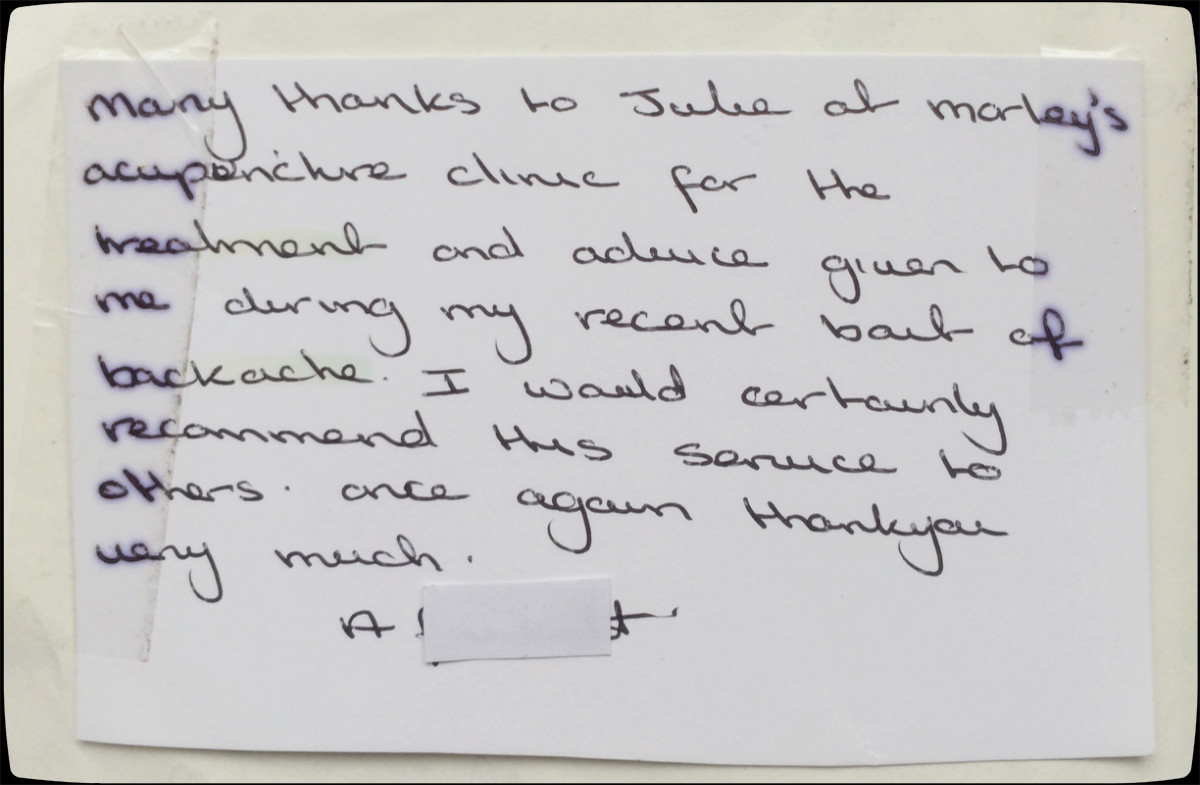 many thanks to Julie at morley's
acupuncture clinic for the
treatment and advice given to
me during my recent bout of
backache. I would certainly
recommend this service to
others. once again thankyou
very much.
A